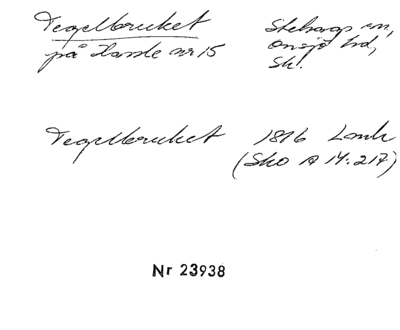 Tegelbruket Stehags sn,
på Hassle nr 15 Onsjö hd,
Sk.
Tegelbruket 1816 Lantm
(Sko A 14:217)
Nr 23938